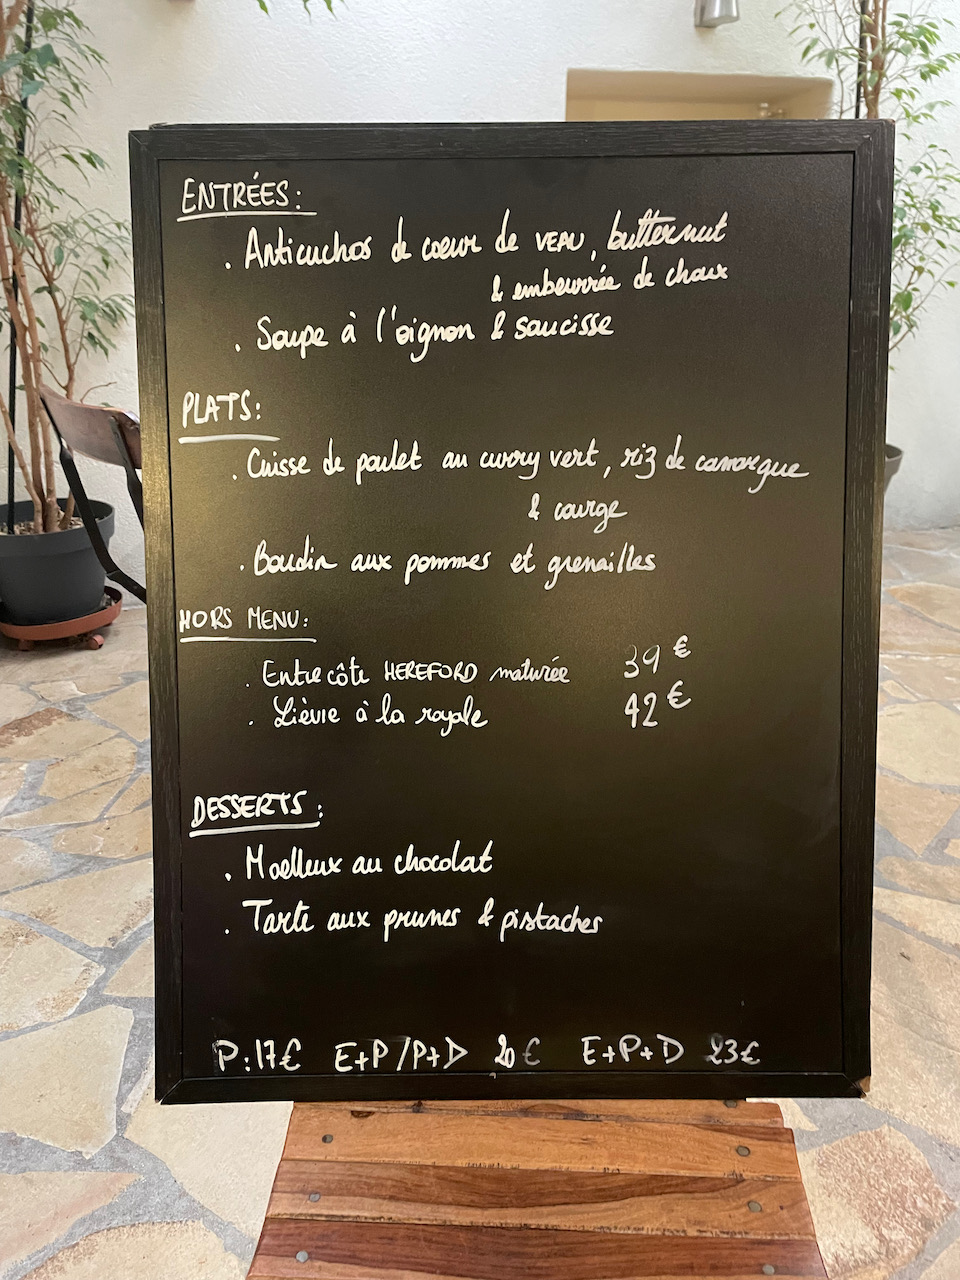 ENTRÉES:
. Anticuchos de coeur de VEAU, butternut
& embeurrée de choux
. Soupe à l'oignon & saucisse
PLATS:
. Cuisse de poulet au curry vert, riz de camargue
& courge
. Boudin aux pommes et grenailles
HORS MENU:
. Entrecôte HEREFORD maturée 39€
. Lièvre à la royale 42€
DESSERTS:
. Moelleux au chocolat
. Tarte aux prunes & pistaches
P:17€ E+P/P+D 20€ E+P+D 23€